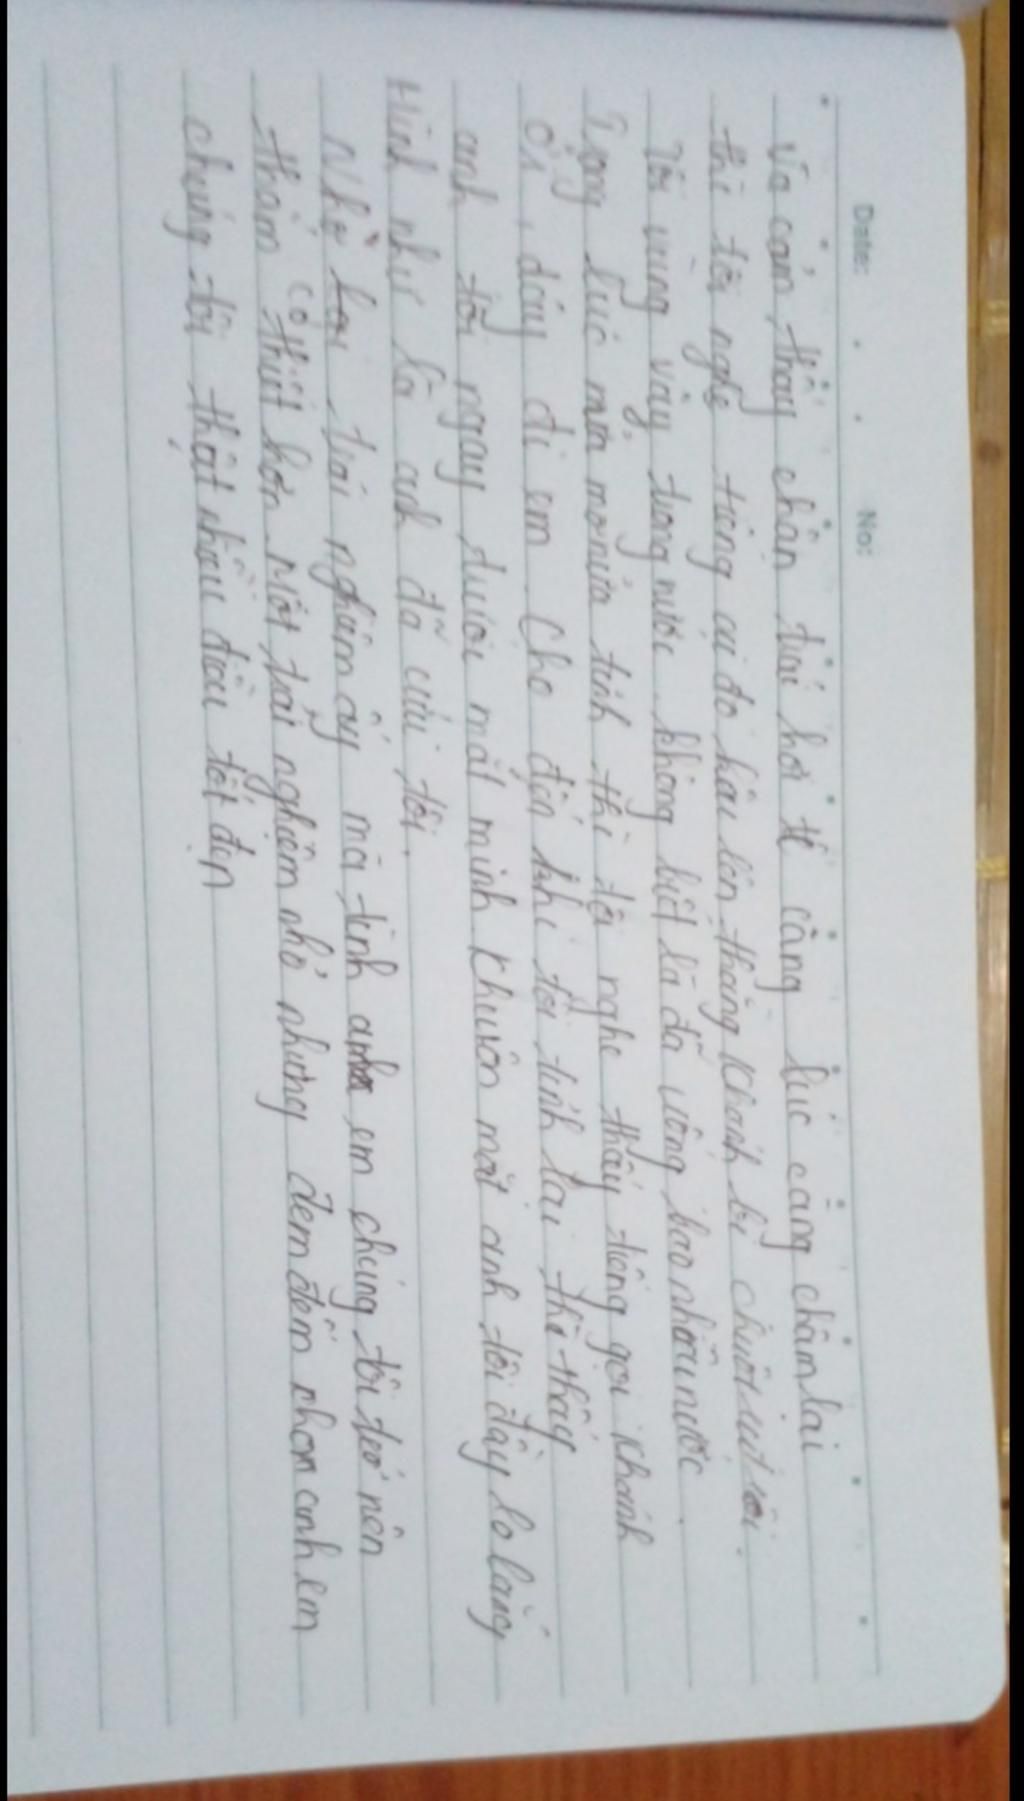 Date: No:
Và cảm thấy chân trái hơi tê càng lúc càng chậm lại
thì tôi nghe tiếng ai đó kêu lên thằng Khánh bị chuột rút rồi.
Tôi vùng vẫy trong nước không biết là đã uống bao nhiêu nước.
Trong lúc mơ mơ nửa tỉnh thì tôi nghe thấy tiếng gọi Khánh
ơi, dậy đi em Cho đến khi tôi tỉnh lại thì thấy
anh tôi ngay dưới mắt mình khuôn mặt anh tôi đầy lo lắng
Hình như là anh đã cứu tôi.
Nhờ trải nghiệm ấy mà tình anh em chúng tôi trở nên
thắm thiết hơn Một trải nghiệm nhỏ nhưng đem đến cho anh em
chúng tôi thật nhiều điều tốt đẹp